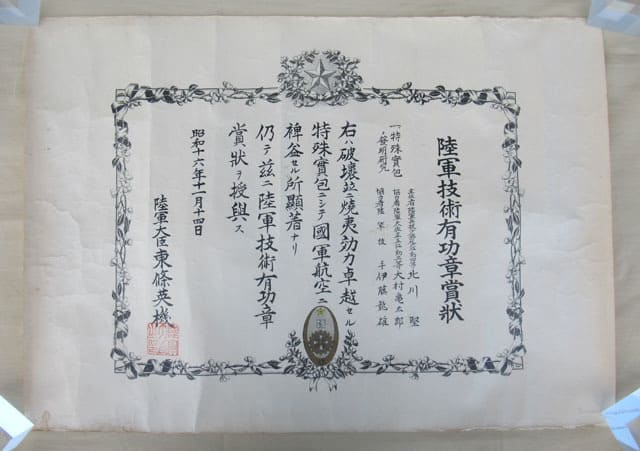 陸軍技術有功章賞狀
一特殊實包
ノ發明研究
北川堅
大村亀太郎
陸軍技手伊藤龍雄
右ハ破壞竝ニ燒夷効力卓越セル
特殊實包ニシテ國軍航空ニ
裨益セル所顯著ナリ
仍テ茲ニ陸軍技術有功章
賞狀ヲ授與ス
昭和十六年十一月十四日
陸軍大臣東條英機